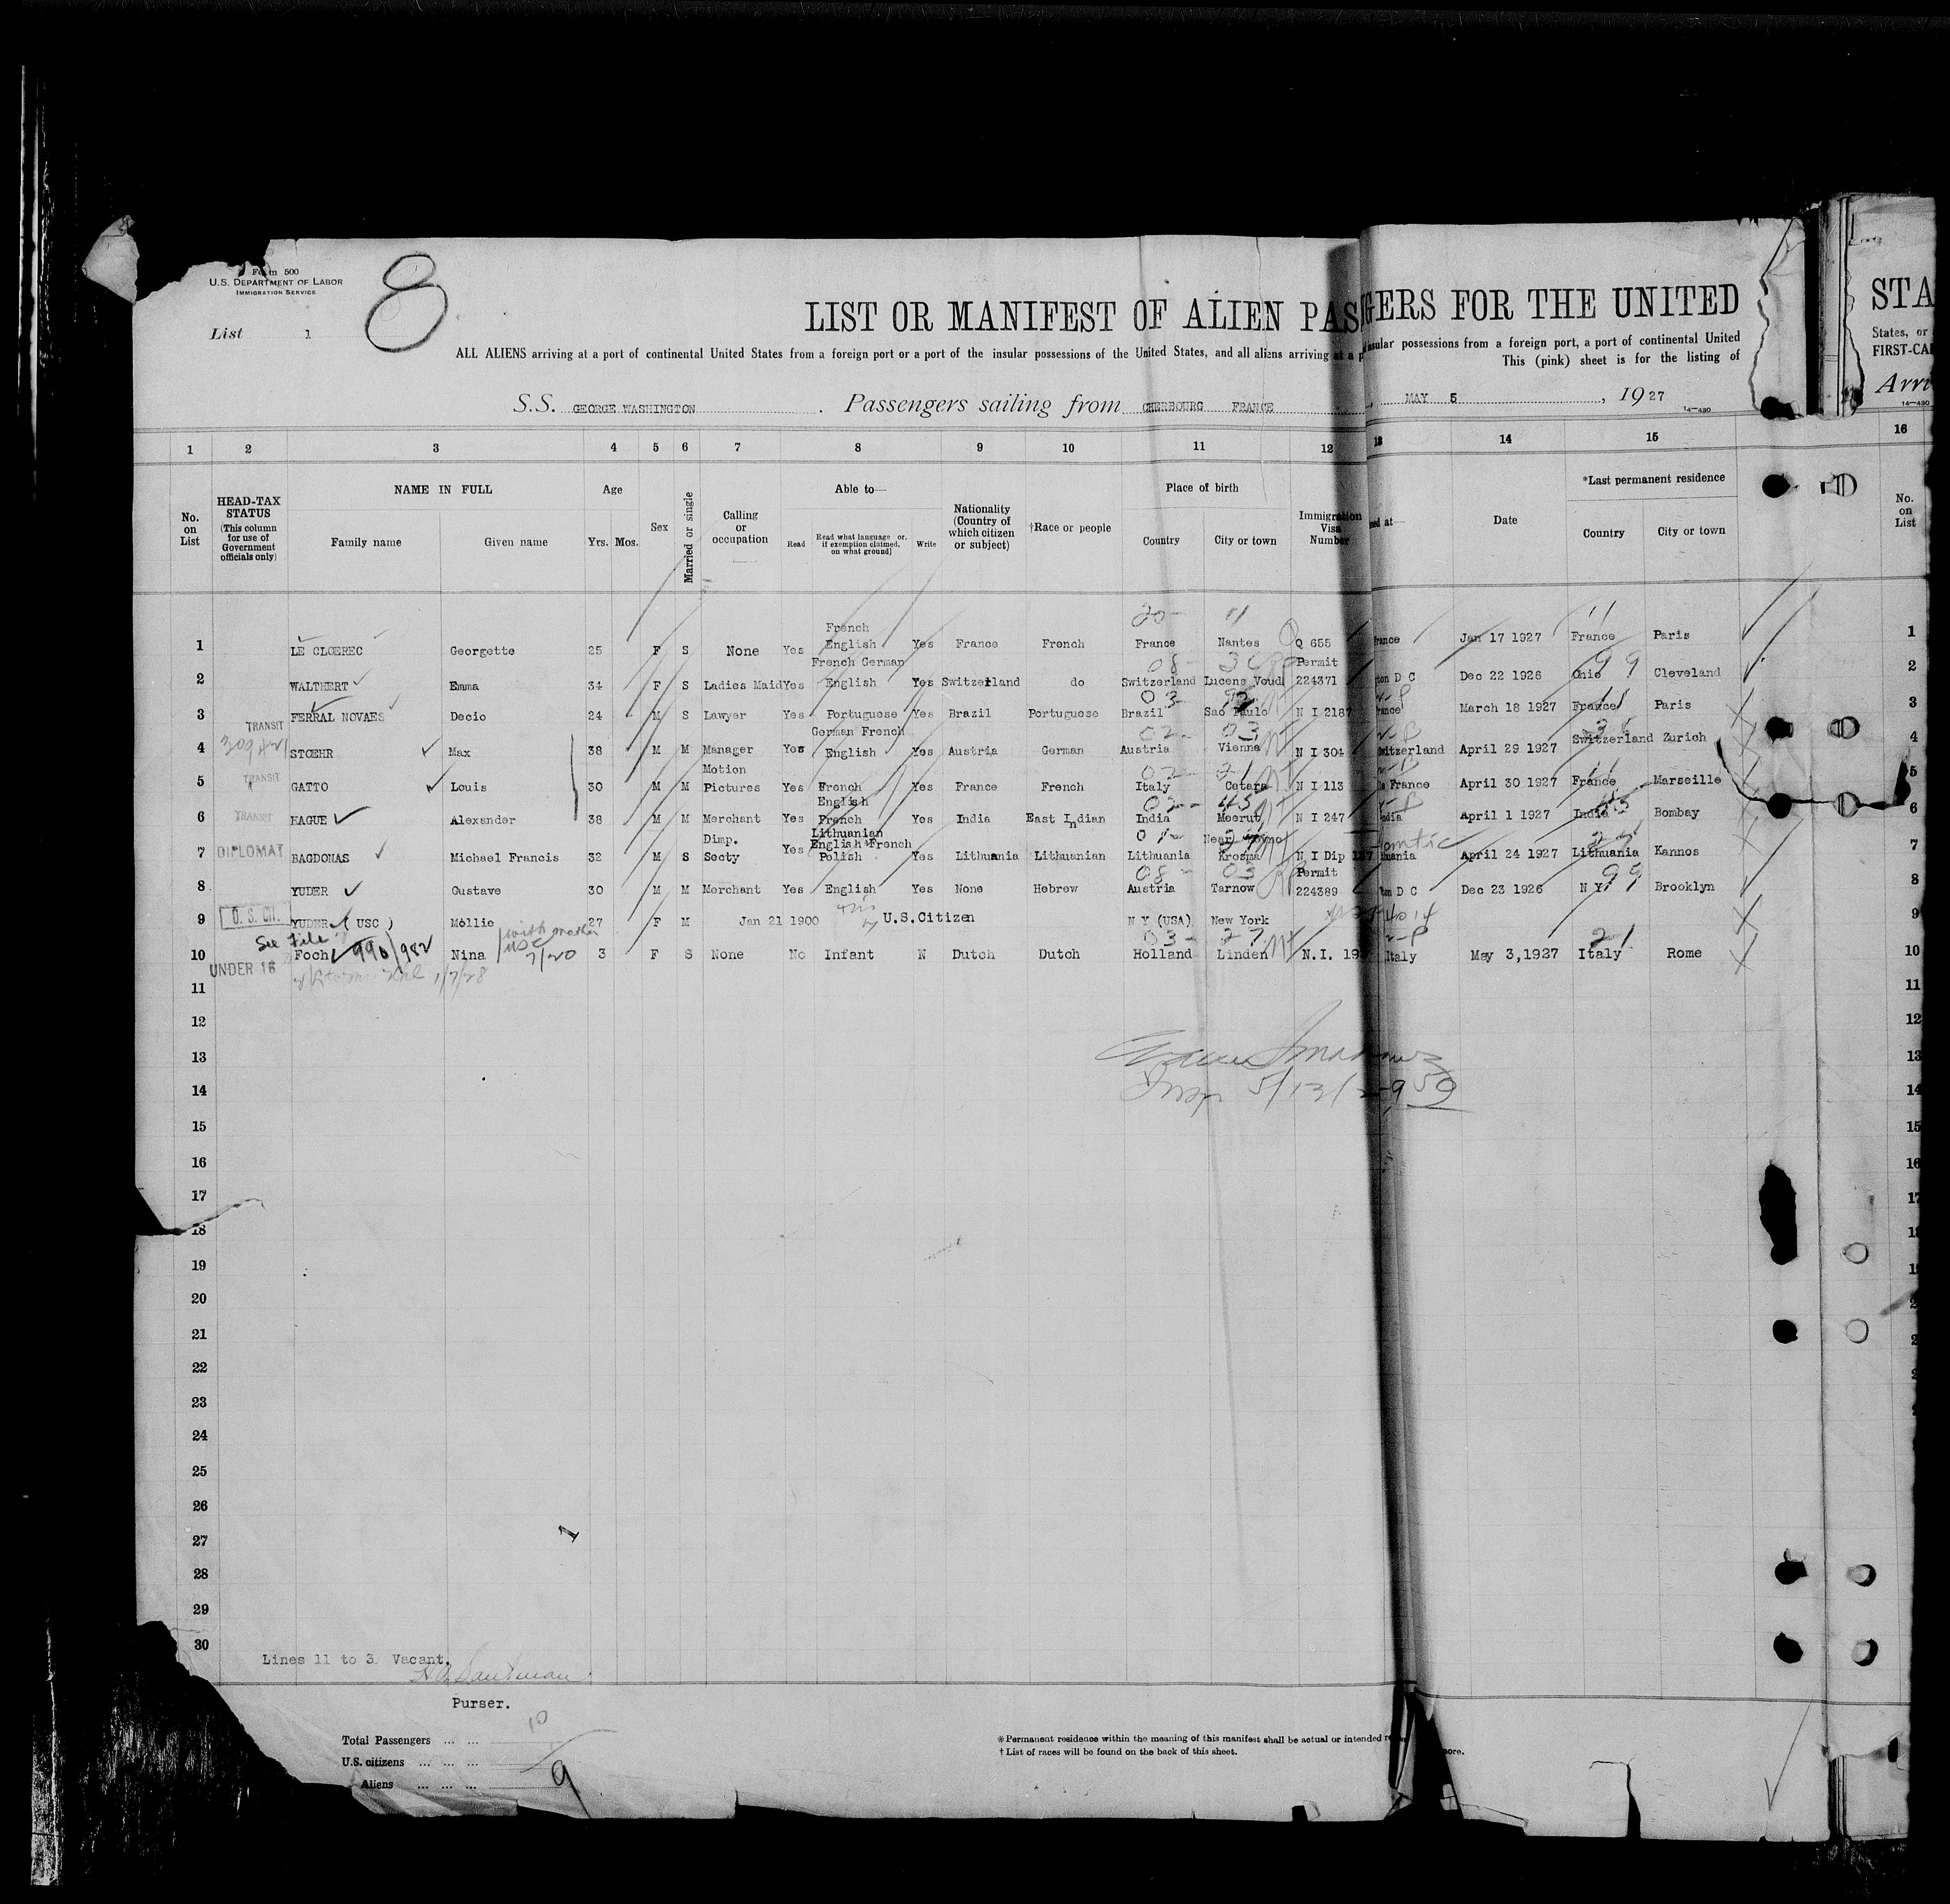 Form 500
U.S. DEPARTMENT OF LABOR
IMMIGRATION SERVICE
8
List 1
LIST OR MANIFEST OF ALIEN PAS GERS FOR THE UNITED STA
ALL ALIENS arriving at a port of continental United States from a foreign port or a port of the insular possessions of the United States, and all aliens arriving at a p insular possessions from a foreign port, a port of continental United States, or
This (pink) sheet is for the listing of FIRST-CA
S.S. GEORGE WASHINGTON . Passengers sailing from CHERBOURG FRANCE , MAY 5 , 1927 Arri
14—430 14—430
1 2 3 4 5 6 7 8 9 10 11 12 13 14 15 16
No. on List
HEAD-TAX STATUS (This column for use of Government officials only)
NAME IN FULL
Family name Given name
Age
Yrs. Mos.
Sex
Married or single
Calling or occupation
Able to—
Read Read what language or, if exemption claimed, on what ground] Write
Nationality (Country of which citizen or subject)
†Race or people
Place of birth
Country City or town
Immigration Visa Number
ued at—
Date
*Last permanent residence
Country City or town
No. on List
20- 11 11
1 LE CLOEREC Georgette 25 F S None Yes French English Yes France French France Nantes Q 655 France Jan 17 1927 France Paris 1
08- 99
2 WALTHERT Emma 34 F S Ladies Maid Yes French German English Yes Switzerland do Switzerland Lucens Voud Permit 224371 ton D C Dec 22 1926 Ohio Cleveland 2
03-
3 FERRAL NOVAES Decio 24 M S Lawyer Yes Portuguese Yes Brazil Portuguese Brazil Sao Paulo N I 2187 France March 18 1927 France Paris 3
TRANSIT
02- 03
4 STŒHR Max 38 M M Manager Yes German French English Yes Austria German Austria Vienna N I 304 Switzerland April 29 1927 Switzerland Zurich 4
TRANSIT
02- 21
5 GATTO Louis 30 M M Motion Pictures Yes French Yes France French Italy Cetara N I 113 le France April 30 1927 France Marseille 5
TRANSIT
02- 45
6 HAGUE Alexander 38 M M Merchant Yes English French Yes India East Indian India Meerut N I 247 ndia April 1 1927 India Bombay 6
DIPLOMAT
01-
7 BAGDONAS Michael Francis 32 M S Dimp. Secty Yes Lithuanian English French Polish Yes Lithuania Lithuanian Lithuania Near Krosma N I Dip huania April 24 1927 Lithuania Kannos 7
08- 03 99
8 YUDER Gustave 30 M M Merchant Yes English Yes None Hebrew Austria Tarnow Permit 224389 ton D C Dec 23 1926 N Y Brooklyn 8
9 YUDER ( USC ) Mollie 27 F M Jan 21 1900 U.S.Citizen N Y (USA) New York 9
See File 990/982 with mother USC 7/20
03- 27 21
10 UNDER 16 Foch Nina 3 F S None No Infant N Dutch Dutch Holland Linden N.I. 19 Italy May 3,1927 Italy Rome 10
1/7/28
11 11
12 12
13 13
Insp 5/13/2
14 14
15 15
16 16
17
18
19
20
21
22
23
24
25
26
27
28
29
30
Lines 11 to 3 Vacant.
Purser.
Total Passengers ... ... 10
U.S. citizens ... ... ...
Aliens ... ... ... 9
*Permanent residence within the meaning of this manifest shall be actual or intended re more.
†List of races will be found on the back of this sheet.